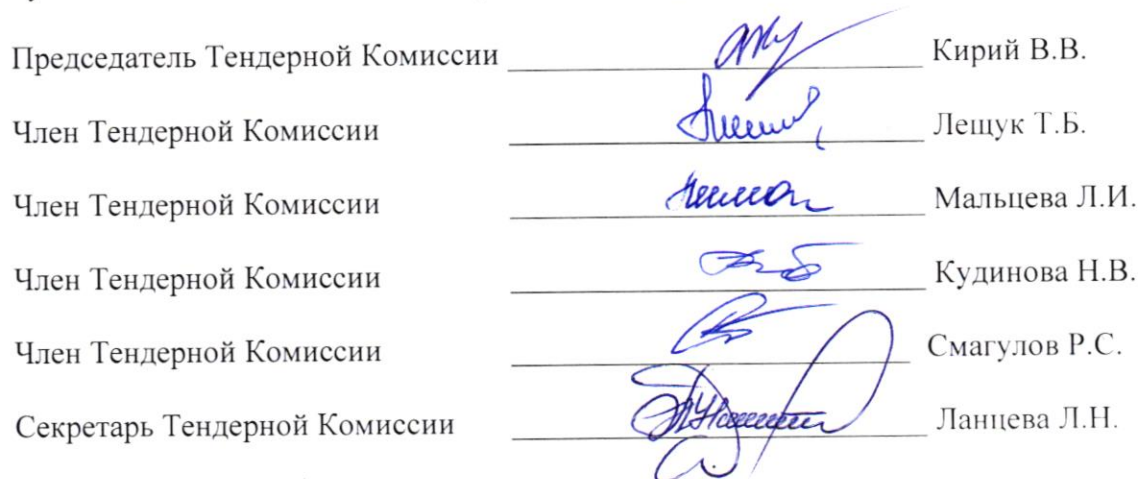 Председатель Тендерной Комиссии Кирий В.В.
Член Тендерной Комиссии Лещук Т.Б.
Член Тендерной Комиссии Мальцева Л.И.
Член Тендерной Комиссии Кудинова Н.В.
Член Тендерной Комиссии Смагулов Р.С.
Секретарь Тендерной Комиссии Ланцева Л.Н.